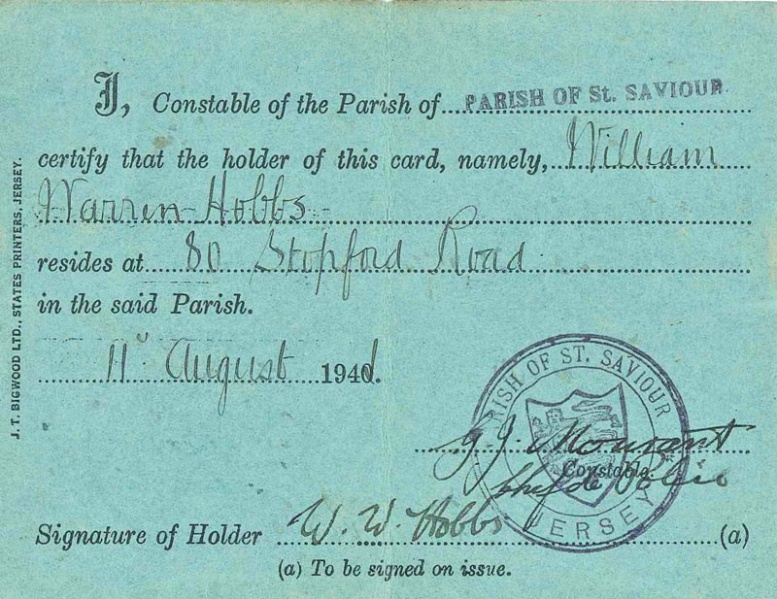 I, Constable of the Parish of PARISH OF St. SAVIOUR.
certify that the holder of this card, namely, William
Warren Hobbs
resides at 80 Stopford Road
in the said Parish.
11 August 1941.
G J Mourant
Constable.
Chef de Police
PARISH OF ST. SAVIOUR
JERSEY
Signature of Holder W. W. Hobbs (a)
(a) To be signed on issue.
J. T. BIGWOOD LTD., STATES PRINTERS, JERSEY.